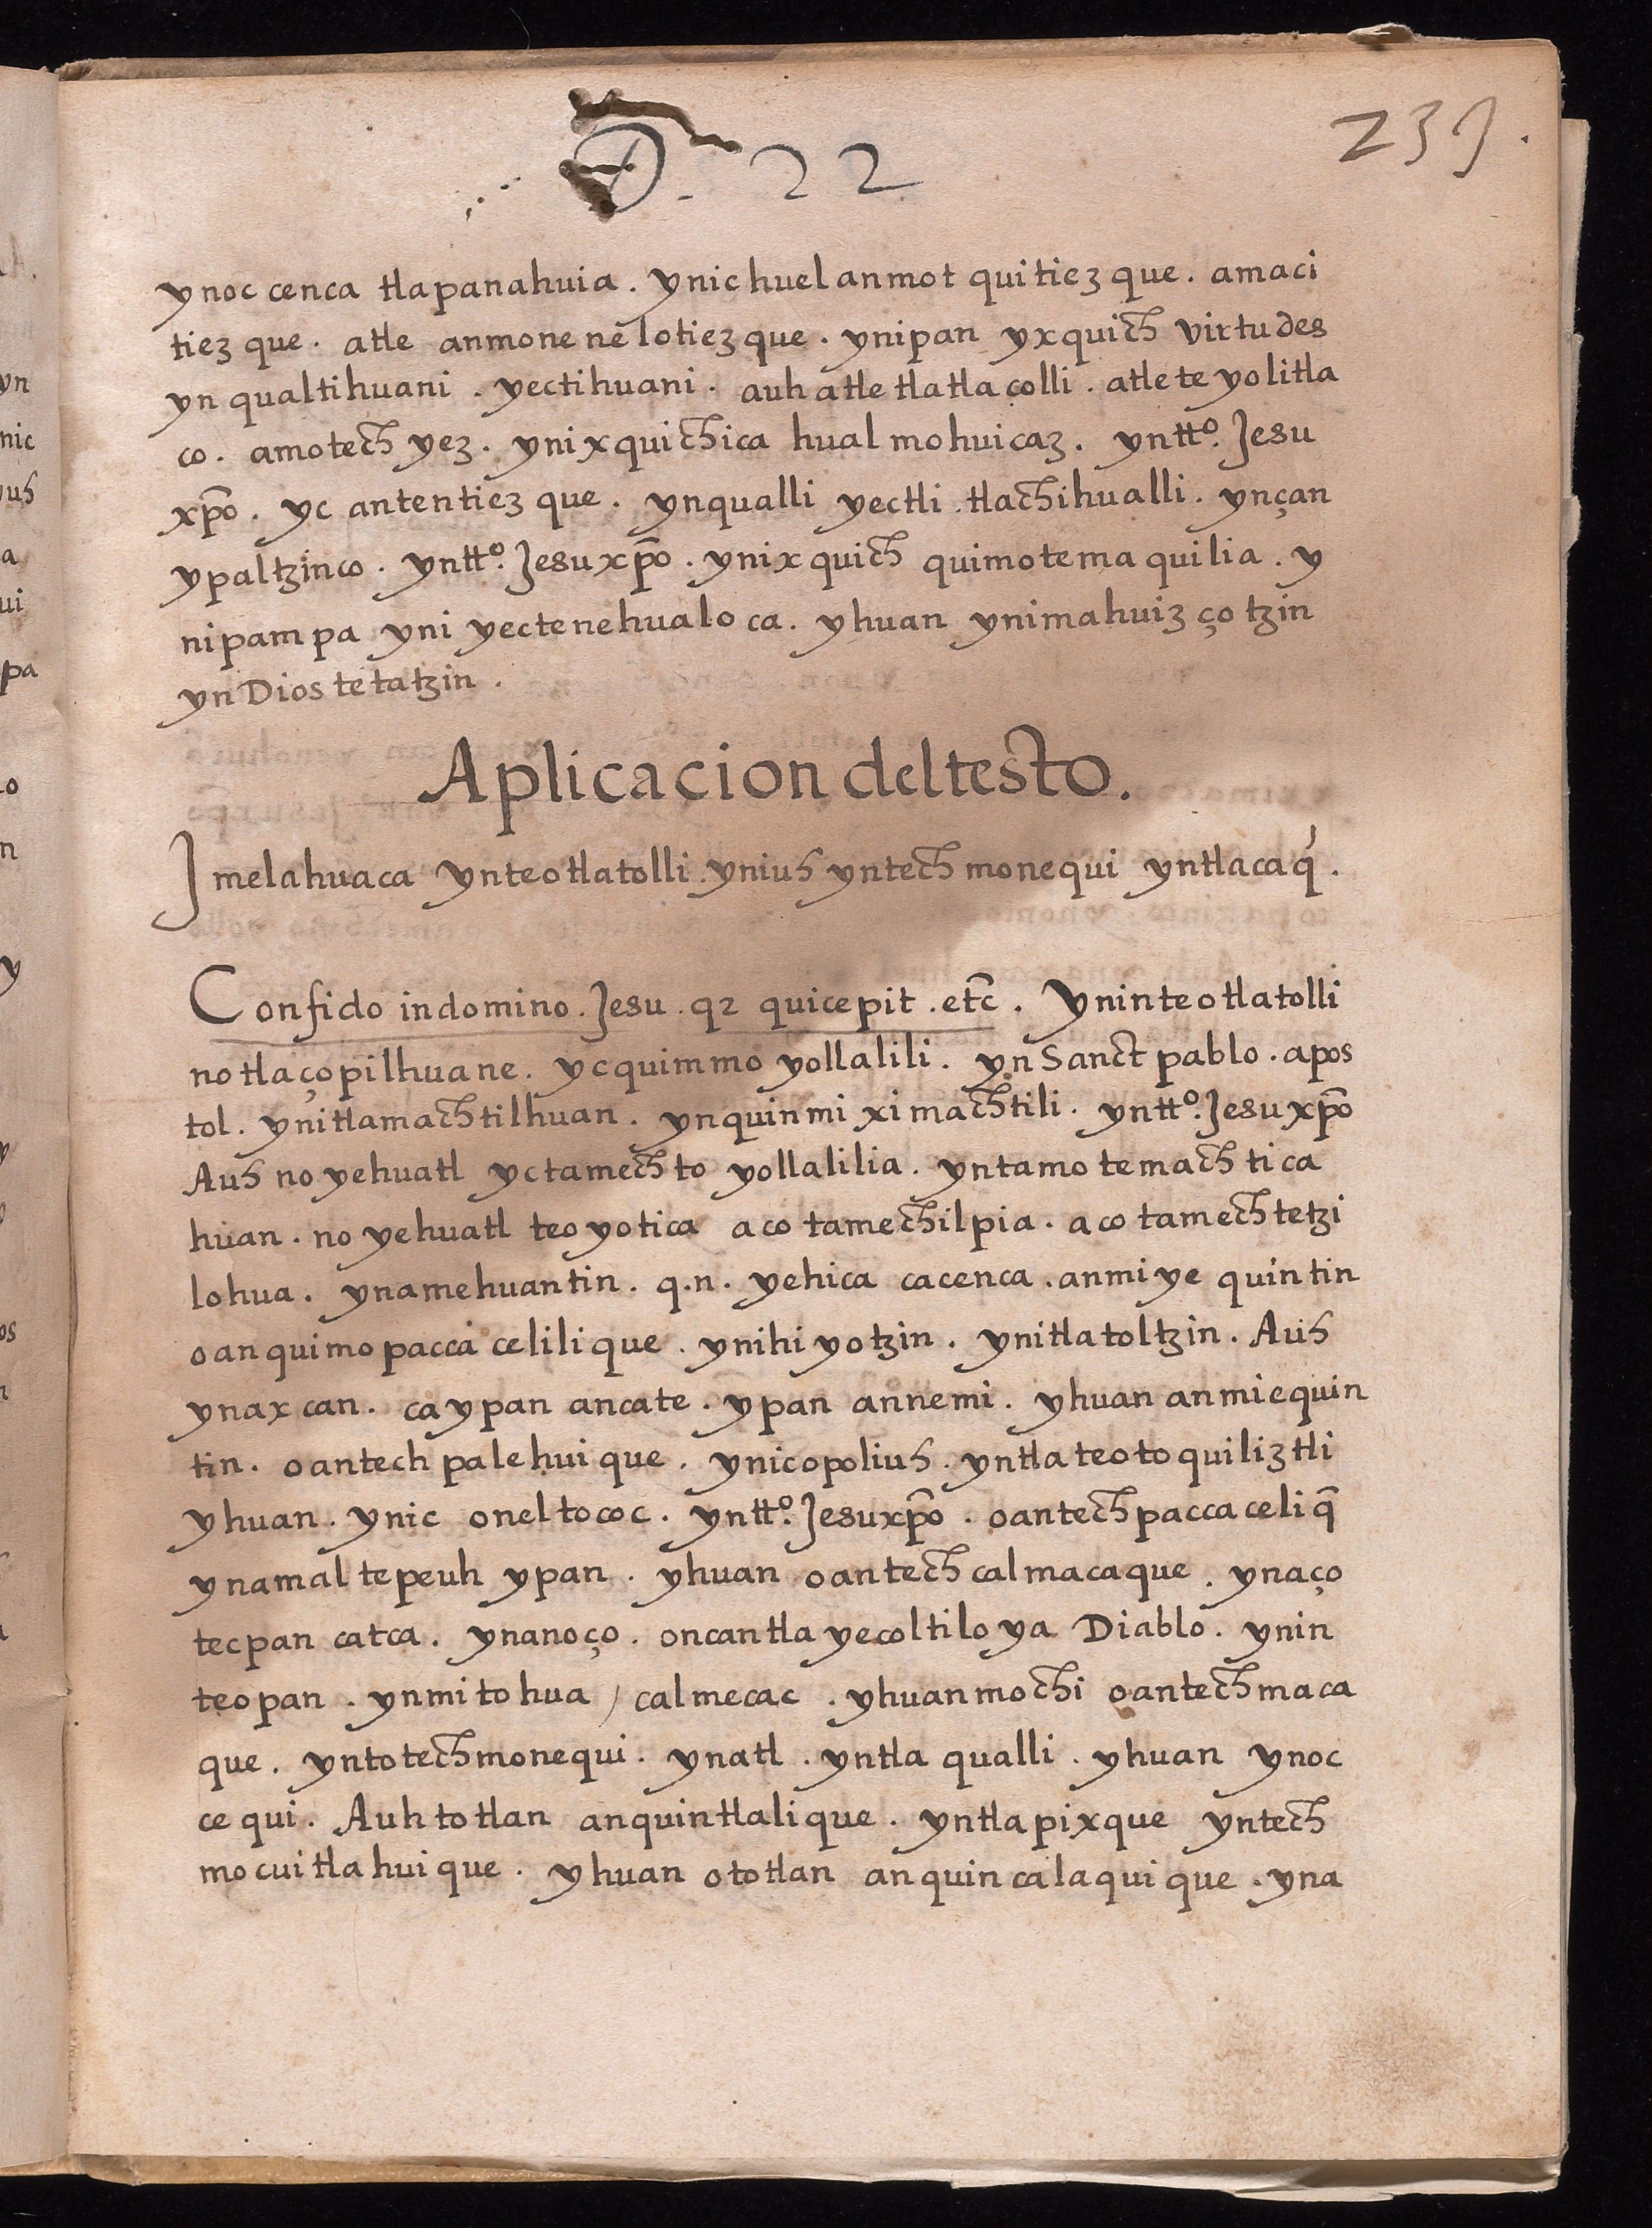 D. 22
239.
ynoc cenca tlapanahuia. ynic huel anmot quitiezque. amaci
tiezque. atle anmonenēlotiezque. ynipan yxquich virtudes
yn qualtihuani. yectihuani. auh atle tlatlacolli. atle teyolitla
co. amotech yez. ynixquichica hualmohuicaz. yntto. Jesu
xpō. yc antentiezque. ynqualli yectli. tlachihualli. ynçan
ypaltzinco. yntto. Jesu xpō. ynixquich quimotemaquilia. y
nipampa yni yectenehualoca. yhuan ynimahuizçotzin
yn Dios tetatzin.
Aplicacion del testo.
Jmelahuaca ynteotlatolli. yniuh yntech monequi yntlacaq́.
Confido in domino. Jesu. q2 qui cepit. etc̄. Ynin teotlatolli
notlaçopilhuane. ycquimmoyollalili. yn Sanct pablo. apos
tol. ynitlamachtilhuan. ynquinmiximachtili. yntto. Jesu xpō
Auh no yehuatl yctamechtoyollalilia. yntamotemachtica
huan. no yehuatl teoyotica acotamechilpia. acotamechtetzi
lohua. ynamehuantin. q.n. yehica cacenca. anmiyequintin
oanquimopaccaceliliique. ynihiyotzin. ynitlatoltzin. Auh
ynaxcan. ca ypan ancate. ypan annemi. yhuan anmiequin
tin. oantechpalehuique. ynicopoliuh. yntlateotoquiliztli
yhuan. ynic oneltococ. yntto. Jesuxpō. oantechpaccaceliq̄
ynamaltepeuh ypan. yhuan oantechcalmacaque. ynaço
tecpan catca. ynanoço. oncan tlayecoltiloya Diablo. ynin
teopan. ynmitohua / calmecac. yhuan mochi oantechmaca
que. yntotechmonequi. ynatl. yntlaqualli. yhuan ynoc
cequi. Auh totlan anquintlalique. yntlapixque yntech
mocuitlahuique. yhuan ototlan anquincalaquique. yna